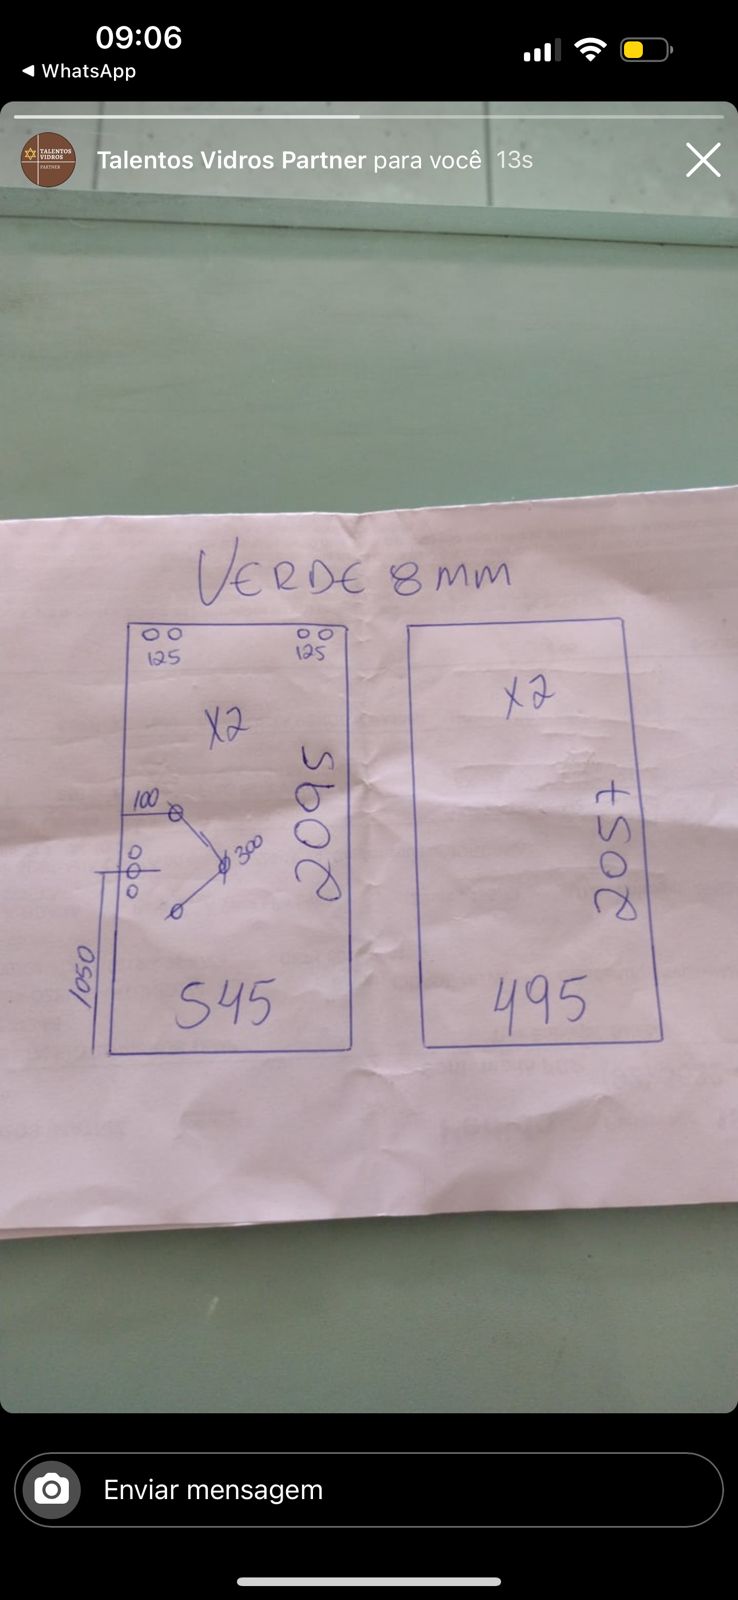 09:06
WhatsApp
TALENTOS
VIDROS
PARTNER
Talentos Vidros Partner para você 13s
VERDE 8 MM
125
125
X2
100
300
2095
1050
545
X2
2057
495
Enviar mensagem